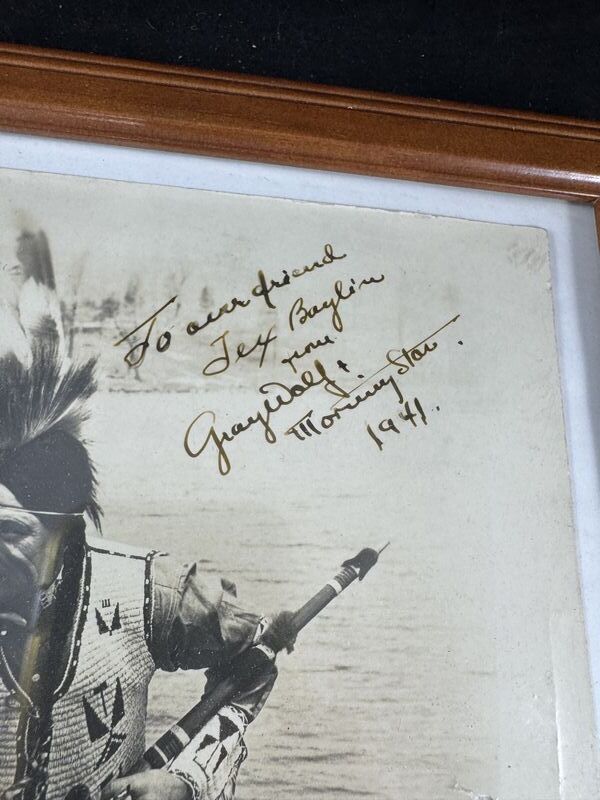 To our friend
Tex Baylin
from
Gray Wolf &
Morning Star.
1941.